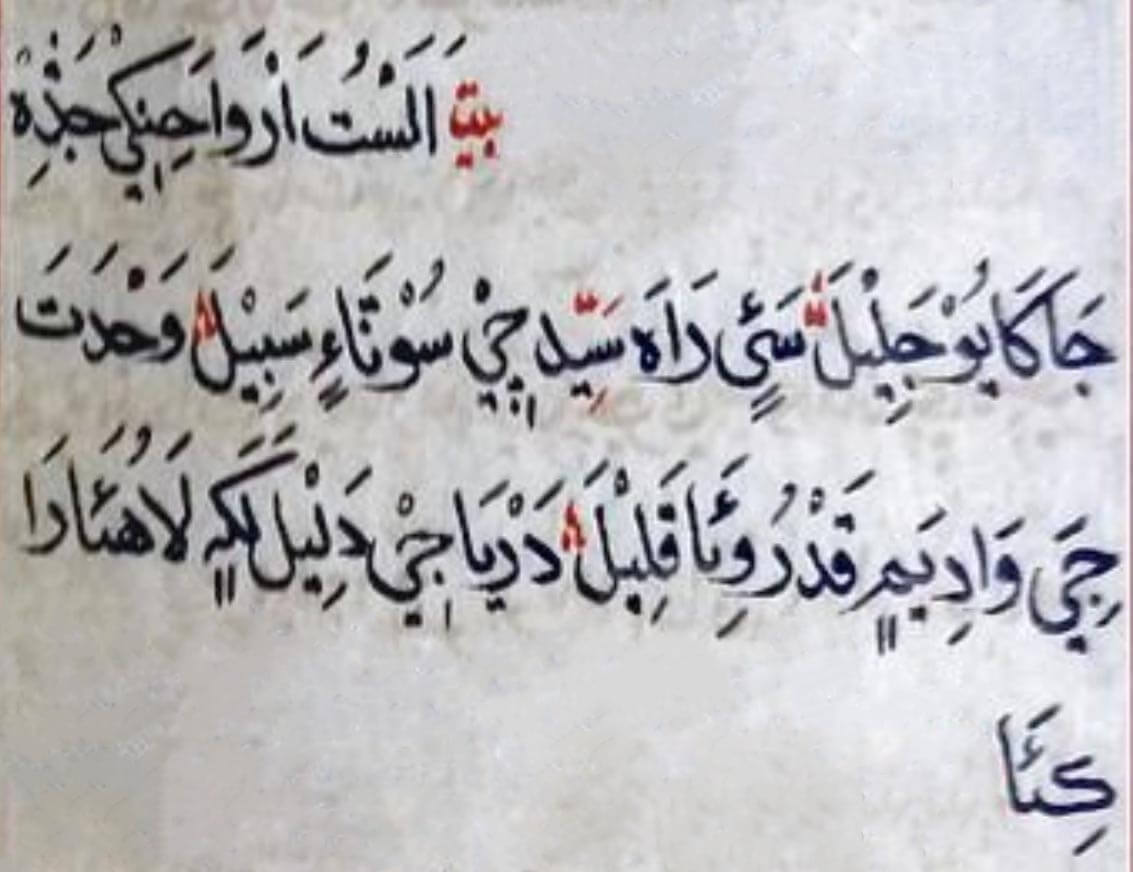 بيت اَلَسْتُ اَرْوَاحَنِكِيْ جَڏِهْ
جَاکَايُوْ جَلِيْلَ سَئِي رَاهَ سَيِّد چٖيْ سُوْنَاءٍ سَبِيْلَ وَحْدَتَ
جِيَ وَادِيَمٍ قَدْرُ وِئَا قَلِيْلَ دَرْيَا جٖيْ دَلِيْل لَکَهٍ لَاهُئَادَا
کِئَا